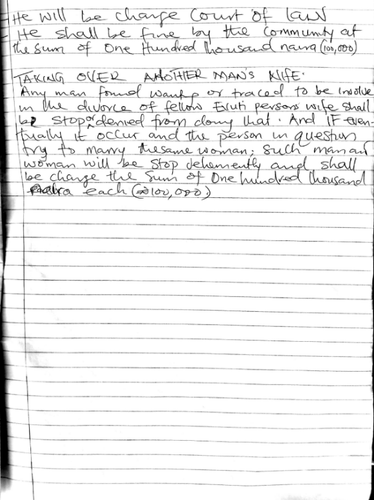 He will be charge Court of law
He shall be fine by the community at
the sum of One Hundred thousand naira (100,000)
TAKING OVER ANOTHER MAN'S WIFE.
Any man found wanting or traced to be involve
in the divorce of fellow persons wife shall
be stop or denied from doing that. And IF even-
tually it occur and the person in question
try to marry thesame woman; such man and
woman will be stop vehemently and shall
be charge the sum of One hundred thousand
naira each (100,000)